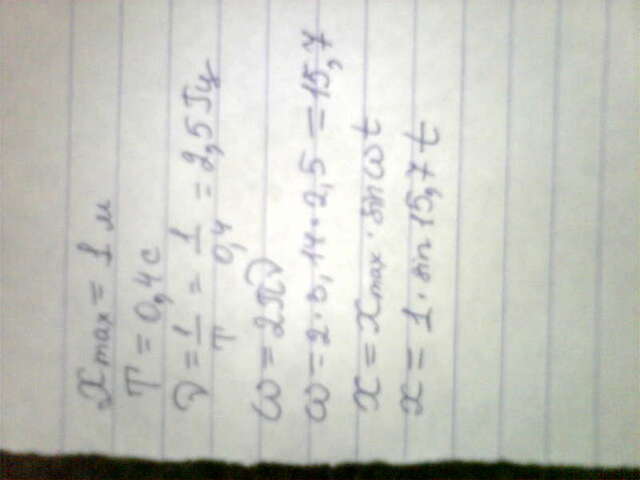 x max = 1 м
T = 0,4 с
ν = 1/T = 1/0,4 = 2,5 Гц
ω = 2πν
ω = 2·3,14·2,5 = 15,7
x = x max · sin ωt
x = 1 · sin 15,7 t